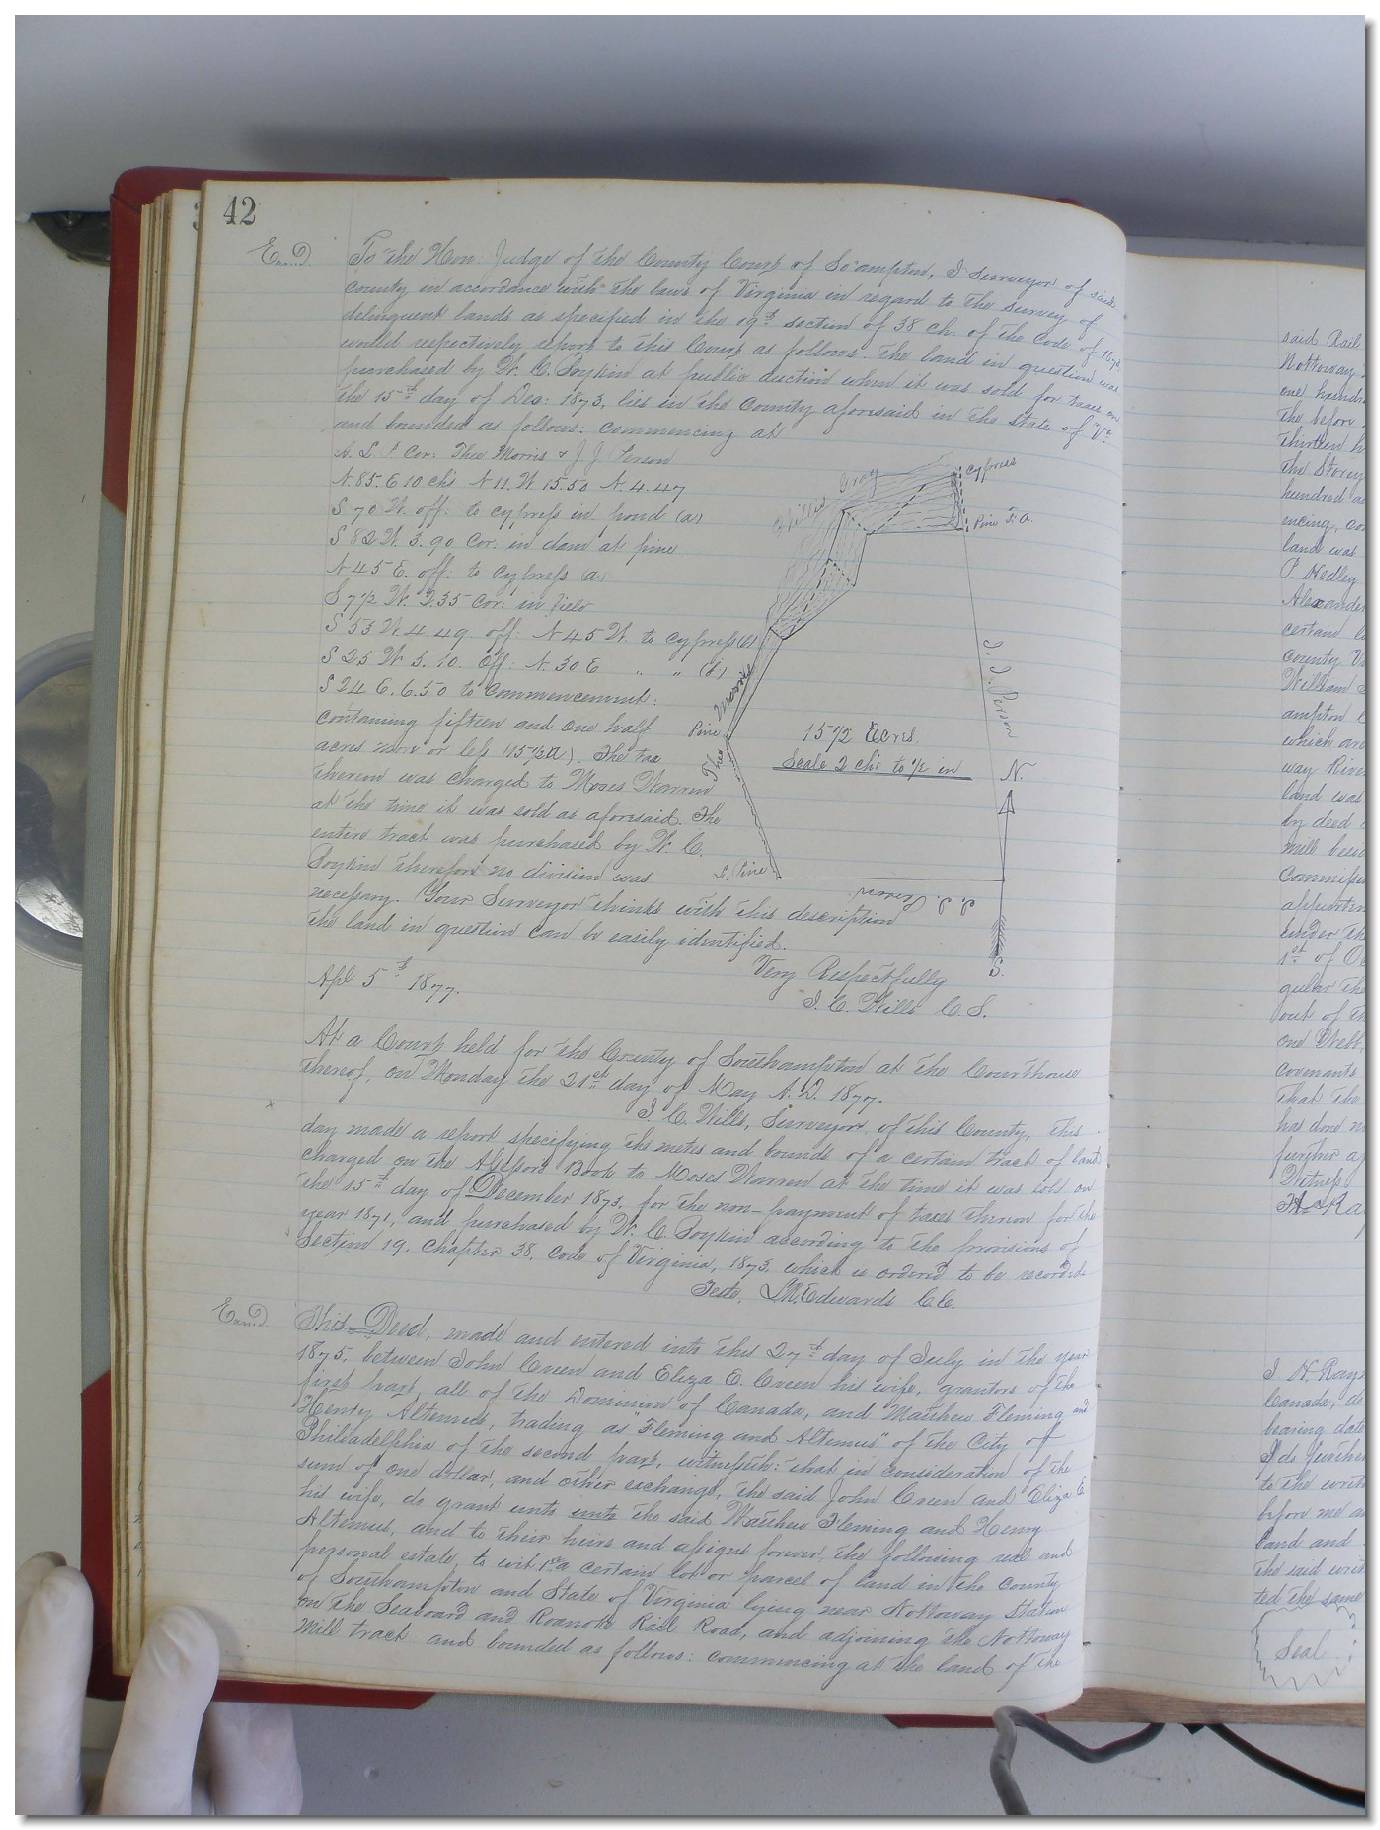 42
Exd.
To the Hon: Judge of the County Court of So'ampton, I Surveyor of said
county in accordance with the laws of Virginia in regard to the survey of
delinquent lands as specified in the 19th section of 38 ch. of the Code of 1873
would respectively report to this Court as follows. The land in question was
purchased by W. C. Boykin at public auction when it was sold for taxes on
the 15th day of Dec: 1873, lies in the County aforesaid in the State of Va
and bounded as follows: commencing at
Cor: Theo Morris & J. J. Person
N. 85. E 10 chs N 11. W. 15.50 N. 4.47
S 70 W. off: to cypress in pond (a)
S 82 W. 3.90 Cor: in dam at pine
N 45 E. off: to cypress (a)
S 7 1/2 W. 2.35 Cor: in field
S 53 W. 4 49 off: N 45 W. to cypress (c)
S 25 W 5.10. Off: N. 30 E " " (d)
S 24 E. 6.50 to commencement:
containing fifteen and one half
acres more or less (15 1/2 a). The tax
thereon was charged to Moses Warren
at the time it was sold as aforesaid. The
entire tract was purchased by W. C.
Boykin therefore no division was
necessary. Your Surveyor thinks with this description
the land in question can be easily identified.
Cypress
Pine
Gray
J. J. Person
Theo Morris
Pine
15 1/2 Acres.
Scale 2 chs to 1/2 in
N.
Pine
J. J. Person
S.
Very Respectfully
J. C. Wills C. S.
Apl 5th 1877.
At a Court held for the County of Southampton at the Courthouse
thereof, on Monday the 21st day of May A. D. 1877.
J. C. Wills, Surveyor of this County, this
day made a report specifying the metes and bounds of a certain tract of land
charged on the Assessor's Book to Moses Warren at the time it was sold on
the 15th day of December 1873, for the non-payment of taxes thereon for the
year 1871, and purchased by W. C. Boykin according to the provisions of
Section 19. Chapter 38. Code of Virginia, 1873. which is ordered to be recorded
Teste, Edwards C.C.
Exd.
This Deed, made and entered into this 27th day of July in the year
1875, between John Green and Eliza E. Green his wife, grantors of the
first part, all of the Dominion of Canada, and Matthew Fleming and
Henry Altemus, trading as "Fleming and Altemus" of the City of
Philadelphia of the second part, witnesseth: that in consideration of the
sum of one dollar, and other exchange, the said John Green and Eliza E
his wife, do grant unto unto the said Matthew Fleming and Henry
Altemus, and to their heirs and assigns forever, the following real and
personal estate, to wit: 1st a certain lot or parcel of land in the County
of Southampton and State of Virginia lying near Nottoway Station
on the Seaboard and Roanoke Rail Road, and adjoining the Nottoway
Mill tract and bounded as follows: commencing at the land of the
said Rail
Nottoway
one hundred
the before
thirteen
the Storey
hundred
encing,
land was
P. Hedley
Alexander
certain
county
William
ampton
which are
way River
land was
by deed
mill
Commission
appurten
under
1st of
gular the
out of
one Webb
covenants
That the
has done
further
Witness
I H Ray
Canada, do
bearing date
I do further
to the writ
before me
hand and
the said writ
ted the same
Seal